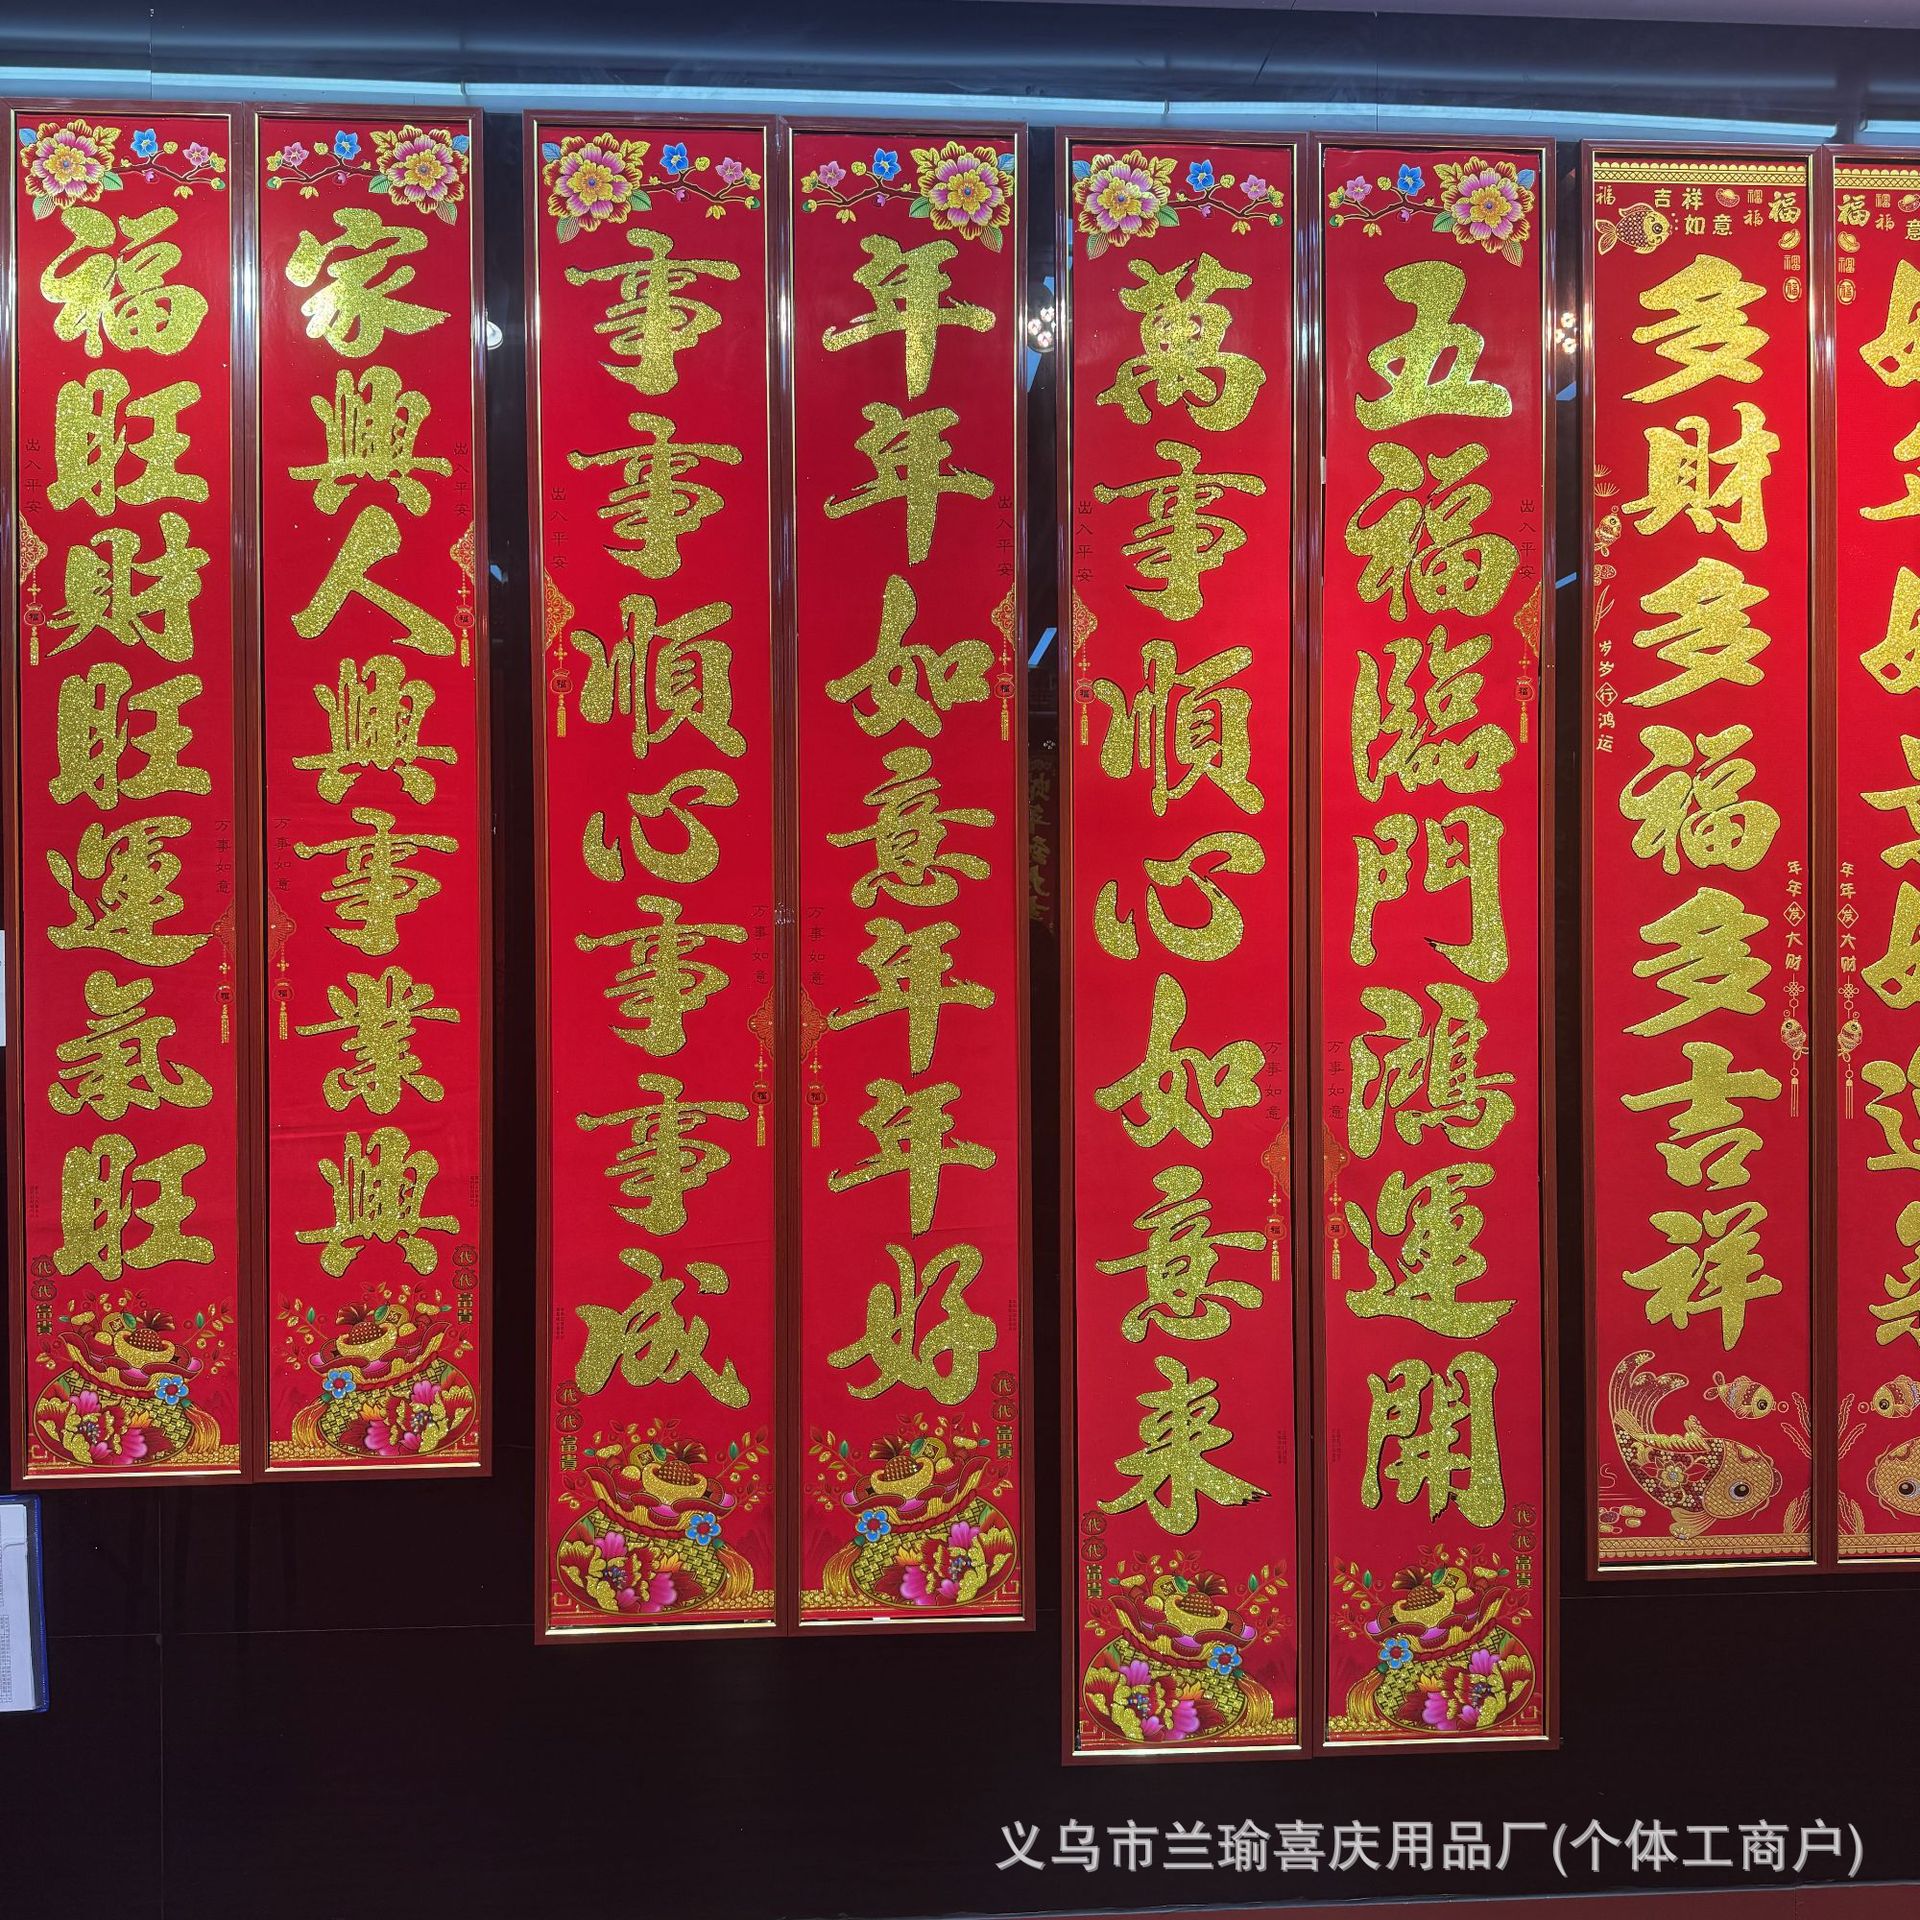 福旺財旺運氣旺
出入平安
福
万事如意
福
代代富貴
家興人興事業興
出入平安
福
万事如意
福
代代富貴
事事順心事事成
出入平安
福
万事如意
福
代代富貴
年年如意年年好
出入平安
福
万事如意
福
代代富貴
萬事順心如意来
出入平安
福
万事如意
福
代代富貴
五福臨門鴻運開
出入平安
福
万事如意
福
代代富貴
福
吉祥
如意
福
福
福
福
福
多財多福多吉祥
岁岁行鸿运
年年发大财
福
福
福
福
福
意
年年发大财
义乌市兰瑜喜庆用品厂(个体工商户)